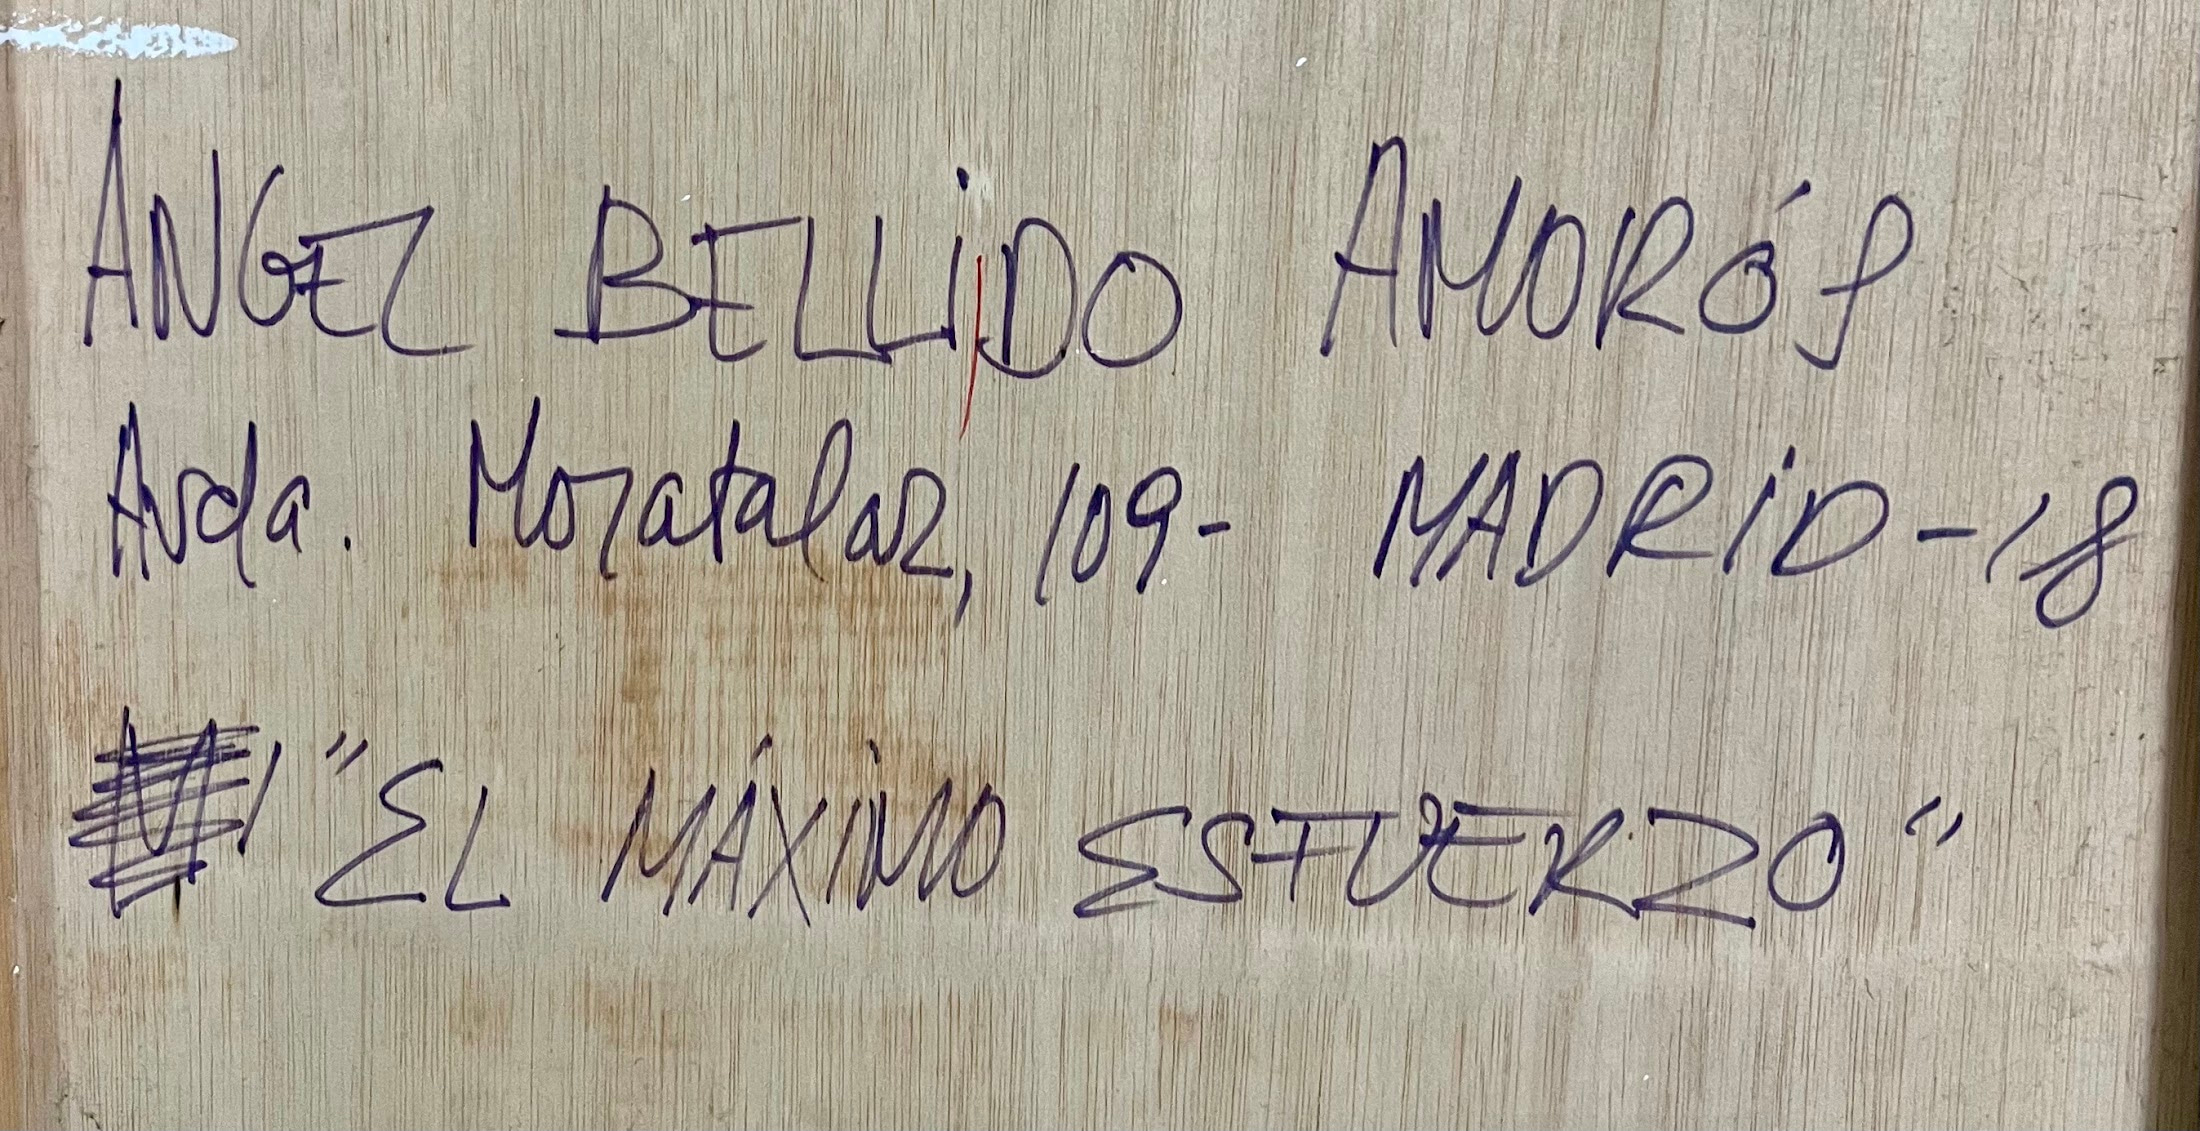 ANGEL BELLIDO AMORÓS
Avda. Moratalaz, 109- MADRID-18
"EL MÁXIMO ESFUERZO"